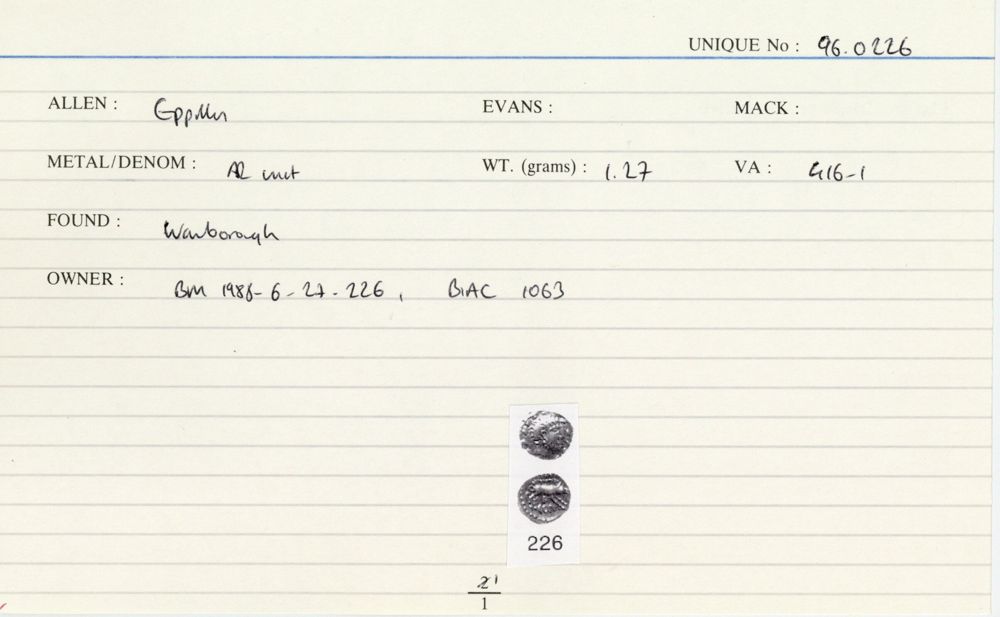 UNIQUE No : 96.0226
ALLEN : Eppillus EVANS : MACK :
METAL/DENOM : AR unit WT. (grams) : 1.27 VA : 416-1
FOUND : Wanborough
OWNER : BM 1986-6-27-226, BIAC 1063
226
1